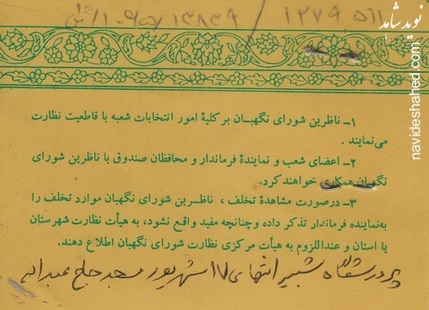 نوید شاهد
navideshahed.com
۱ـ ناظرین شورای نگهبان بر کلیهٔ امور انتخابات شعبه با قاطعیت نظارت
می‌نمایند .
۲ـ اعضای شعب و نمایندهٔ فرماندار و محافظان صندوق با ناظرین شورای
نگهبان همکاری خواهند کرد.
۳ـ درصورت مشاهدهٔ تخلف ، ناظرین شورای نگهبان موارد تخلف را
به‌نماینده فرماندار تذکر داده و چنانچه مفید واقع نشود، به هیأت نظارت شهرستان
یا استان و عنداللزوم به هیأت مرکزی نظارت شورای نگهبان اطلاع دهند.
پرورشگاه شبیر انتهای ۱۷ شهریور مسجد حاج عبداله